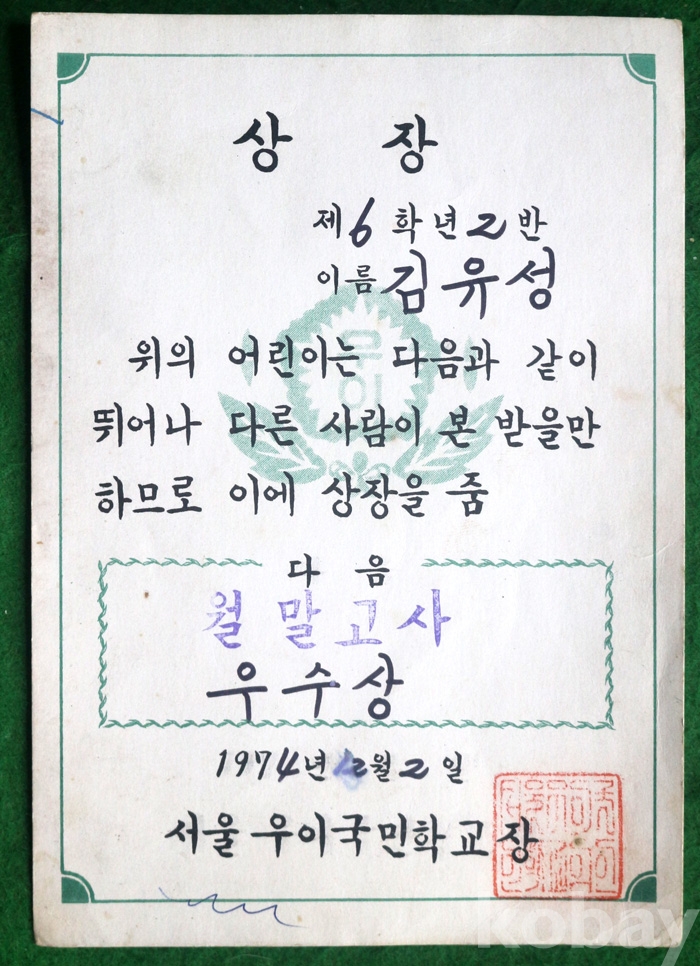 상 장
제6학년2반
이름 김유성
우이
위의 어린이는 다음과 같이
뛰어나 다른 사람이 본 받을만
하므로 이에 상장을 줌
다 음
월말고사
우수상
1974년 12월 2일
서울 우이국민학교장
kobay